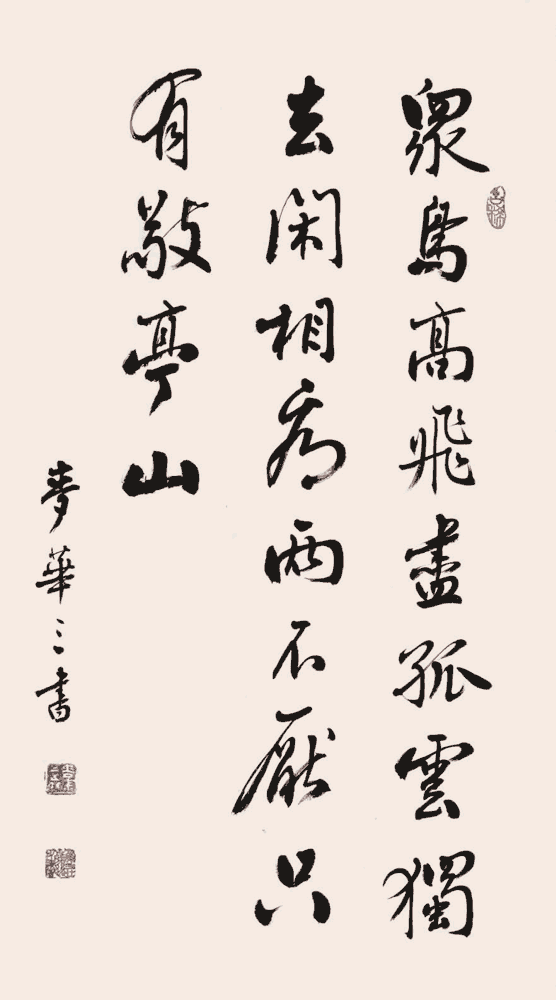 眾鳥高飛盡孤雲獨
去閑相看兩不厭只
有敬亭山
夢華三書